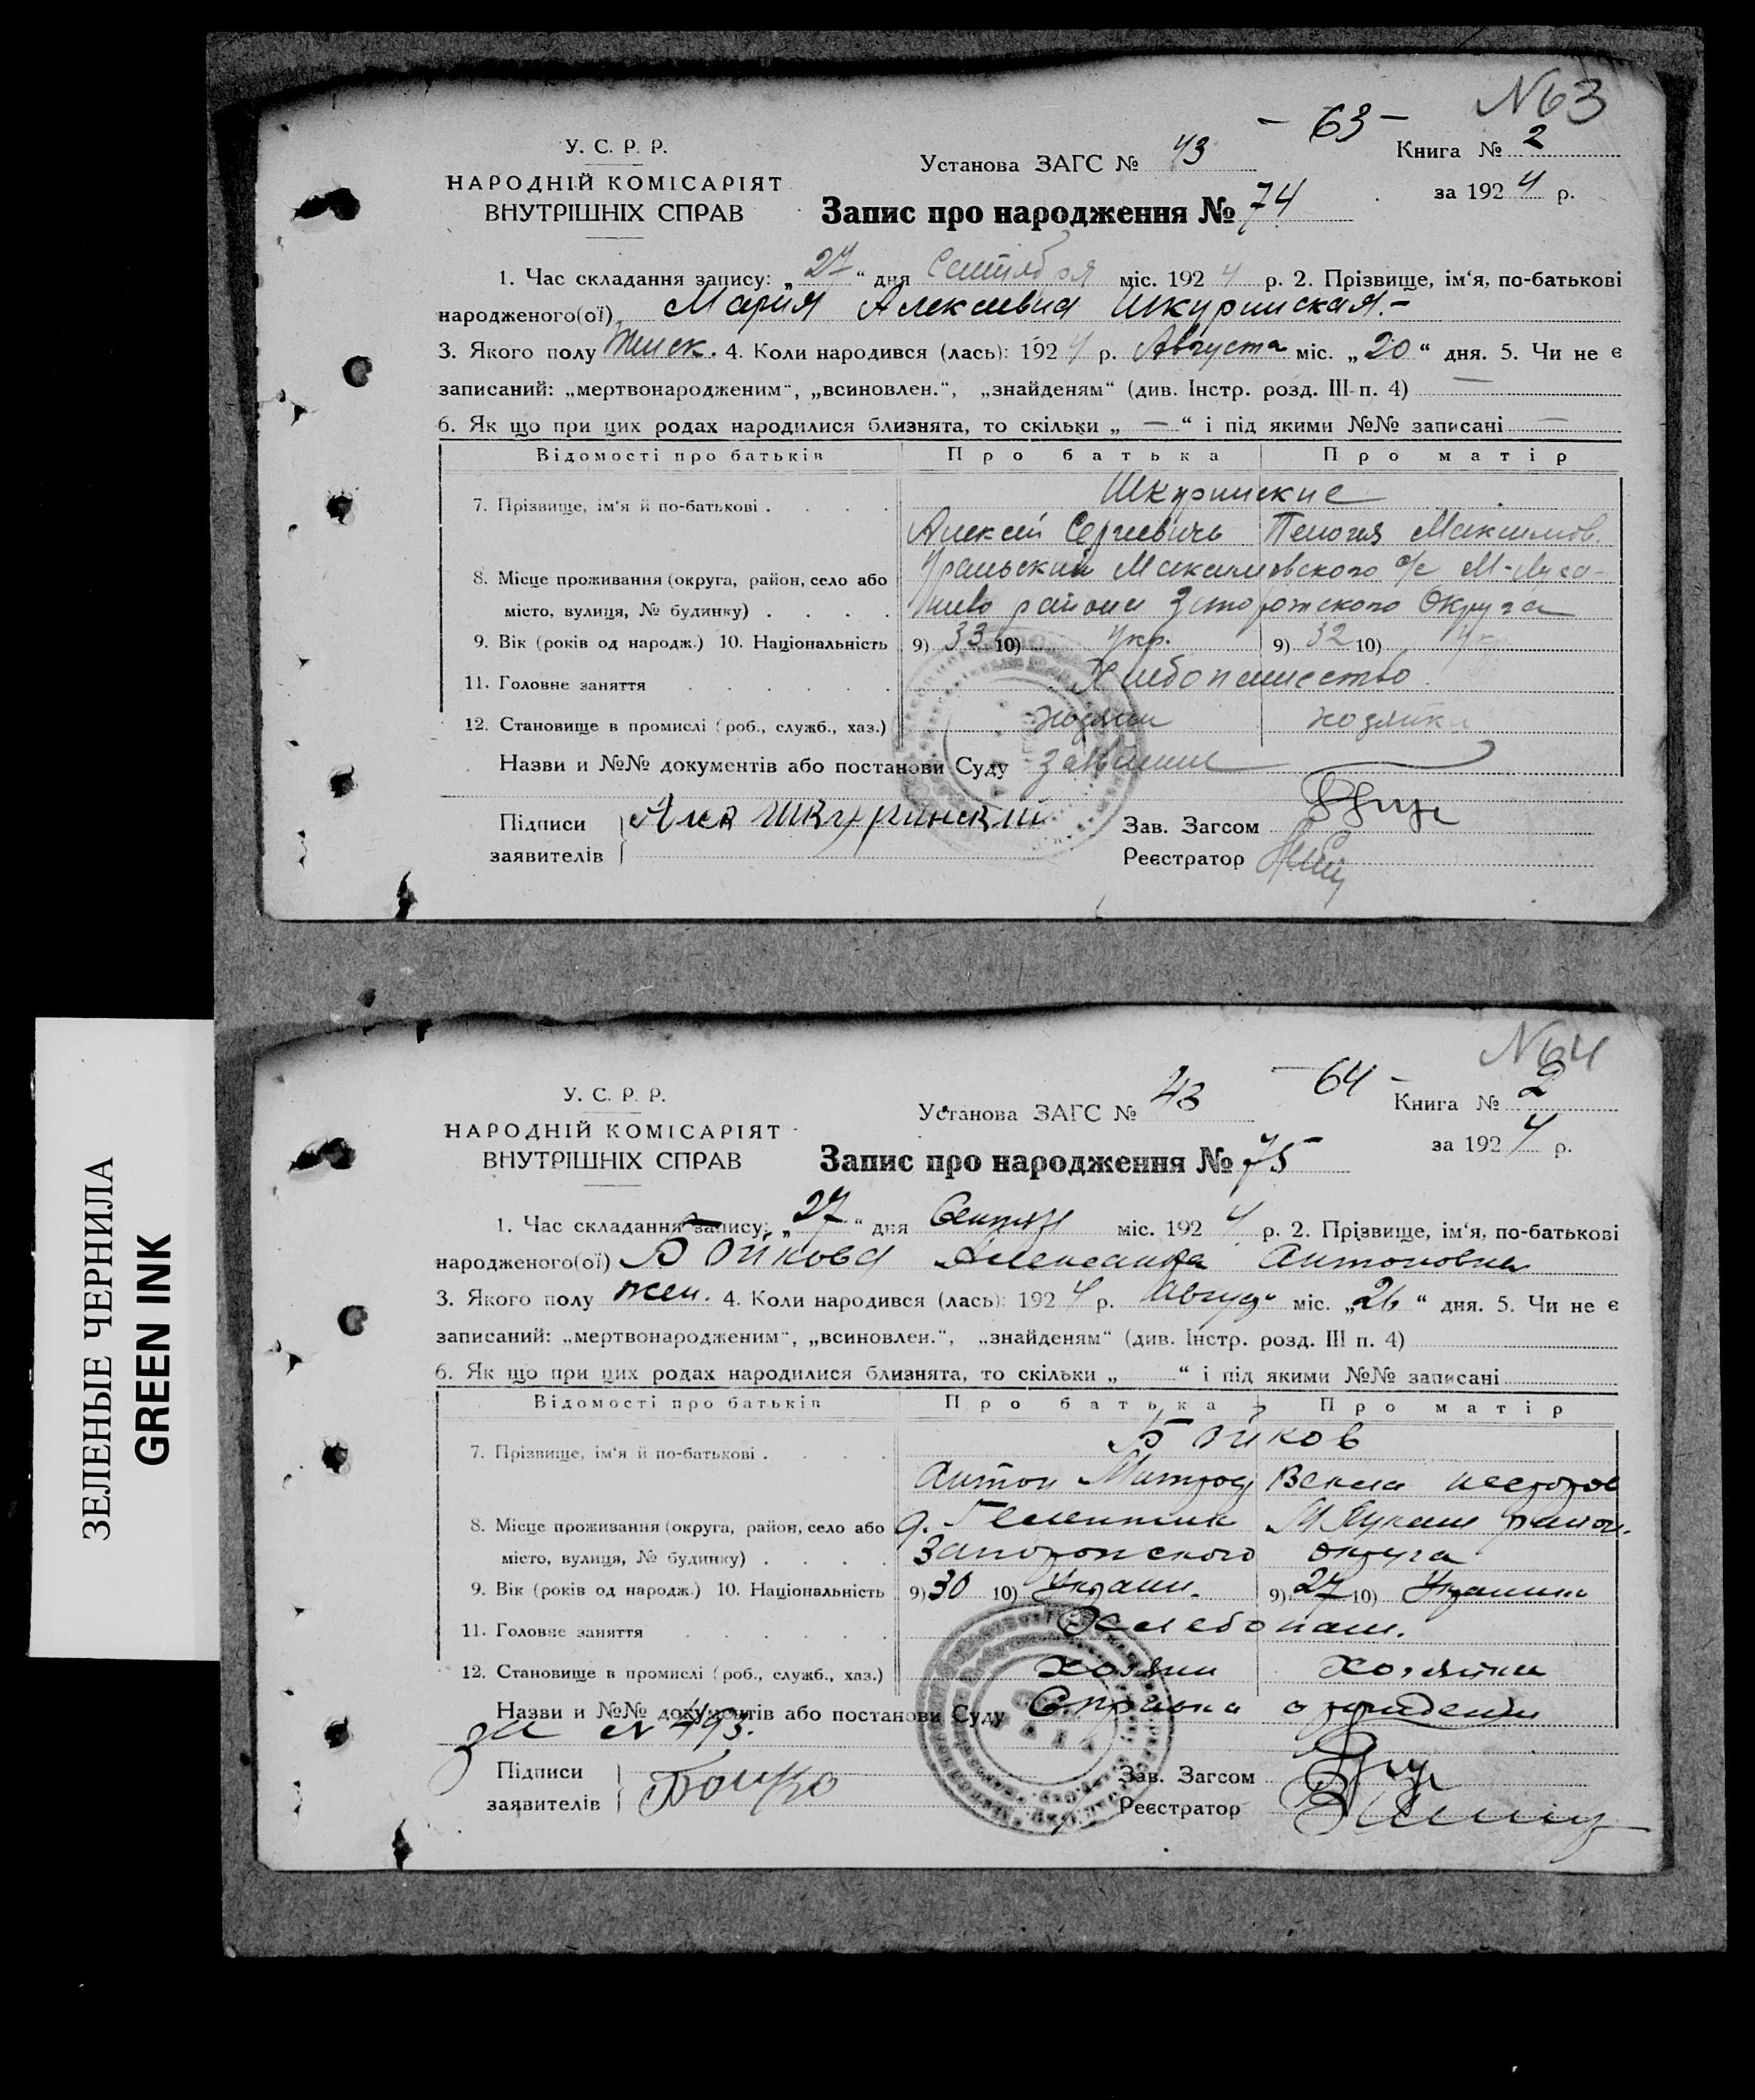 N63
- 63 -
У. С. Р. Р.
Установа ЗАГС № 43
Книга № 2
НАРОДНІЙ КОМІСАРІЯТ
за 1924 р.
ВНУТРІШНІХ СПРАВ
Запис про народження № 74
1. Час складання запису: „27“ дня Сентября міс. 1924 р. 2. Прізвище, ім‘я, по-батькові
народженого(ої) Мария Алексеевна Шкуринская.-
3. Якого полу Женск. 4. Коли народився (лась): 1924 р. Августа міс. „20“ дня. 5. Чи не є
записаний: „мертвонародженим“, „всиновлен.“, „знайденям“ (див. Інстр. розд. III п. 4) —
6. Як що при цих родах народилися близнята, то скільки „ — “ і під якими №№ записані —
Відомості про батьків Про батька Про матір
7. Прізвище, ім‘я й по-батькові . . . . Шкуринские
Алексей Сергеевичь Пелогия Максимов.
8. Місце проживання (округа, район, село або
місто, вулиця, № будинку) . . . .
района Запорожского Округа
9. Вік (років од народж.) 10. Національність 9) 33 10) Укр. 9) 32 10) Укр.
11. Головне заняття . . . . . . Хлебопашество
12. Становище в промислі (роб., служб., хаз.) хозяин хозяйка
Назви и №№ документів або постанови Суду
Підписи Алек Шкуринский
заявителів
Зав. Загсом
Реєстратор
N64
- 64 -
У. С. Р. Р.
Установа ЗАГС № 43
Книга № 2
НАРОДНІЙ КОМІСАРІЯТ
за 1924 р.
ВНУТРІШНІХ СПРАВ
Запис про народження № 75
1. Час складання запису: „27“ дня Сентяр міс. 1924 р. 2. Прізвище, ім‘я, по-батькові
народженого(ої) Бойкова Александра Антоновна
3. Якого полу жен. 4. Коли народився (лась): 1924 р. Август міс. „26“ дня. 5. Чи не є
записаний: „мертвонародженим“, „всиновлен.“, „знайденям“ (див. Інстр. розд. III п. 4)
6. Як що при цих родах народилися близнята, то скільки „ “ і під якими №№ записані
Відомості про батьків Про батька Про матір
7. Прізвище, ім‘я й по-батькові . . . . Бойков
Антон Митроф Векла
8. Місце проживання (округа, район, село або
місто, вулиця, № будинку) . . . . Запорожского округа
9. Вік (років од народж.) 10. Національність 9) 30 10) Украин. 9) 27 10) Украинк
11. Головне заняття . . . . . . Хлебопаш.
12. Становище в промислі (роб., служб., хаз.) хозяин хозяйка
Назви и №№ документів або постанови Суду Справка о рождении
за N 493.
Підписи Бойко
заявителів
Зав. Загсом
Реєстратор
ЗЕЛЕНЫЕ ЧЕРНИЛА
GREEN INK